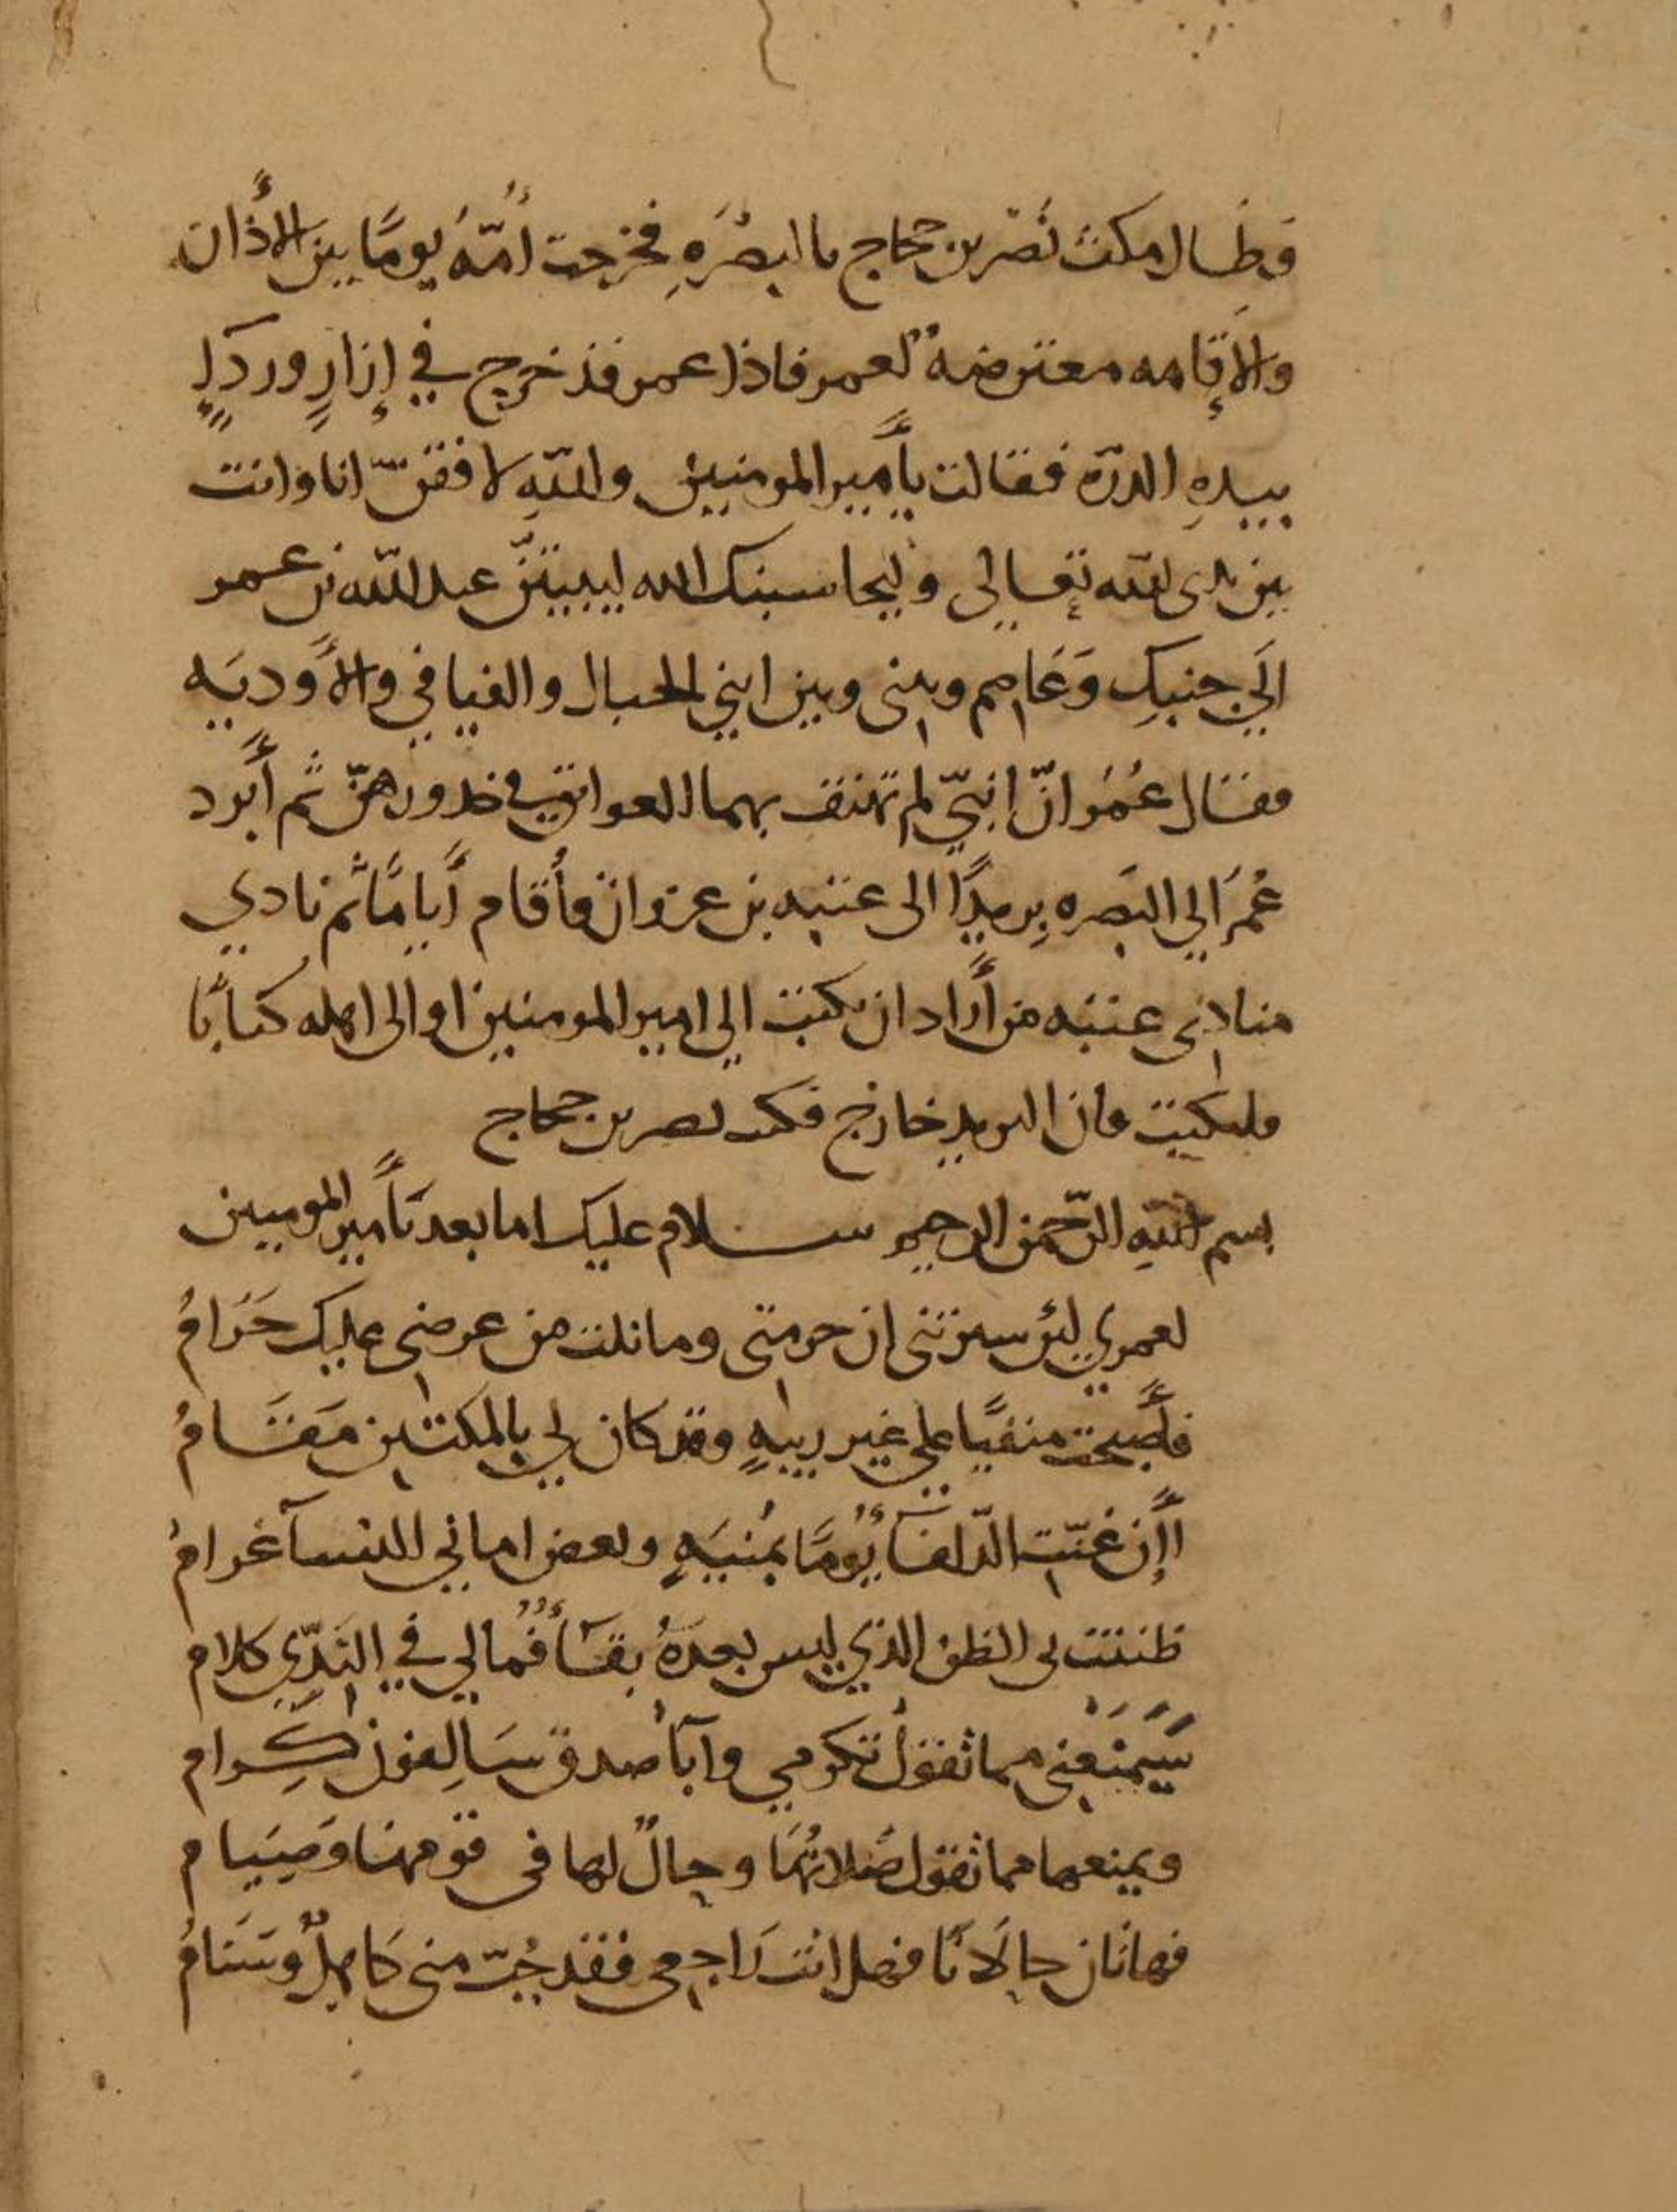 وَطَال مكث نَصْر بن حجاج بالبصْرَهِ فخرجت أُمّهُ يومًا بين الأَذان
والإقامه معترضهً لعمر فاذا عمر قد خرج في إزارٍ وردآءٍ
بيدهِ الدرّه فقالت يأَمير المومنين واللّهِ لاقفنّ انا وانت
بين يدى اللّه تعالى وليحاسبنك الله ايبيتنّ عبد اللّه بن عمر
الَي جنبِك وَعَاصم وبينى وبين ابني الجبال والفيافي والأَوديَه
فقال عُمَر انّ ابنيّ لم تهتف بهما العواتق في خدورهنّ ثم أَبرد
عُمَر الي البَصره بِريدًا الى عتبه بن غزوان فأقام أَيامًا ثم نادي
منادى عتبه من أَراد ان يكتب الي امير المومنين او الى اهله كتابًا
فليكتب فان البريد خارج فكتب نصر بن حجاج
بسم اللّهِ الرّحمن الرحيم سلام عليك اما بعد يأَمير المومنين
لعمري لئن سيرتنى ان حرمتنى وما نلت من عرضى عليك حَرَامُ
فأَصبحت منفيًا علي غير ريبهٍ وقد كان لي بالمكتين مَقَامُ
اإن غنّت الدّلفآءُ يَومًا بمُنيَهٍ وبعض اماني النسآ غرامُ
ظننت بى الظن الذي ليس بعدهُ بقآءٌ فمالي في النَدّيِ كلام
سَيَمْنَعنى مما تقول تكرمي وآبآءُ صدق سَالِفون كِرام
ويمنعها مما تقول صَلاتُهَا وحالٌ لها فى قومها وَصِيَام
فهاتان حالَانَا فهل انت رَاجعى فقد جُبّ منى كَاهلٌ وسَنامُ